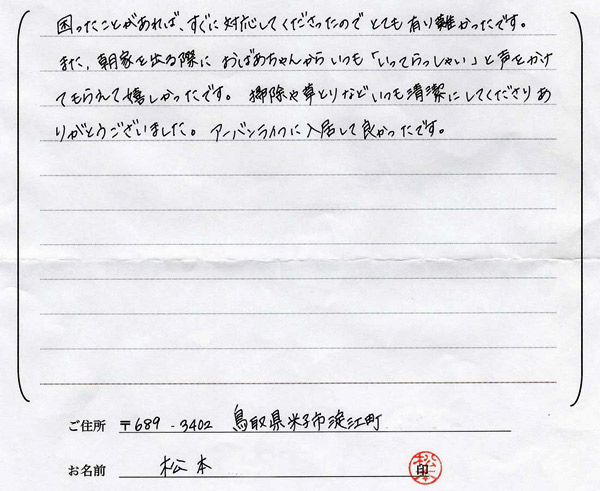 困ったことがあれば、すぐに対応してくださったのでとても有り難かったです。
また、朝家を出る際におばあちゃんからいつも「いってらっしゃい」と声をかけ
てもらえて嬉しかったです。掃除や草とりなどいつも清潔にしてくださりあ
りがとうございました。アーバンライフに入居して良かったです。
ご住所 〒689-3402 鳥取県米子市淀江町
お名前 松本 印